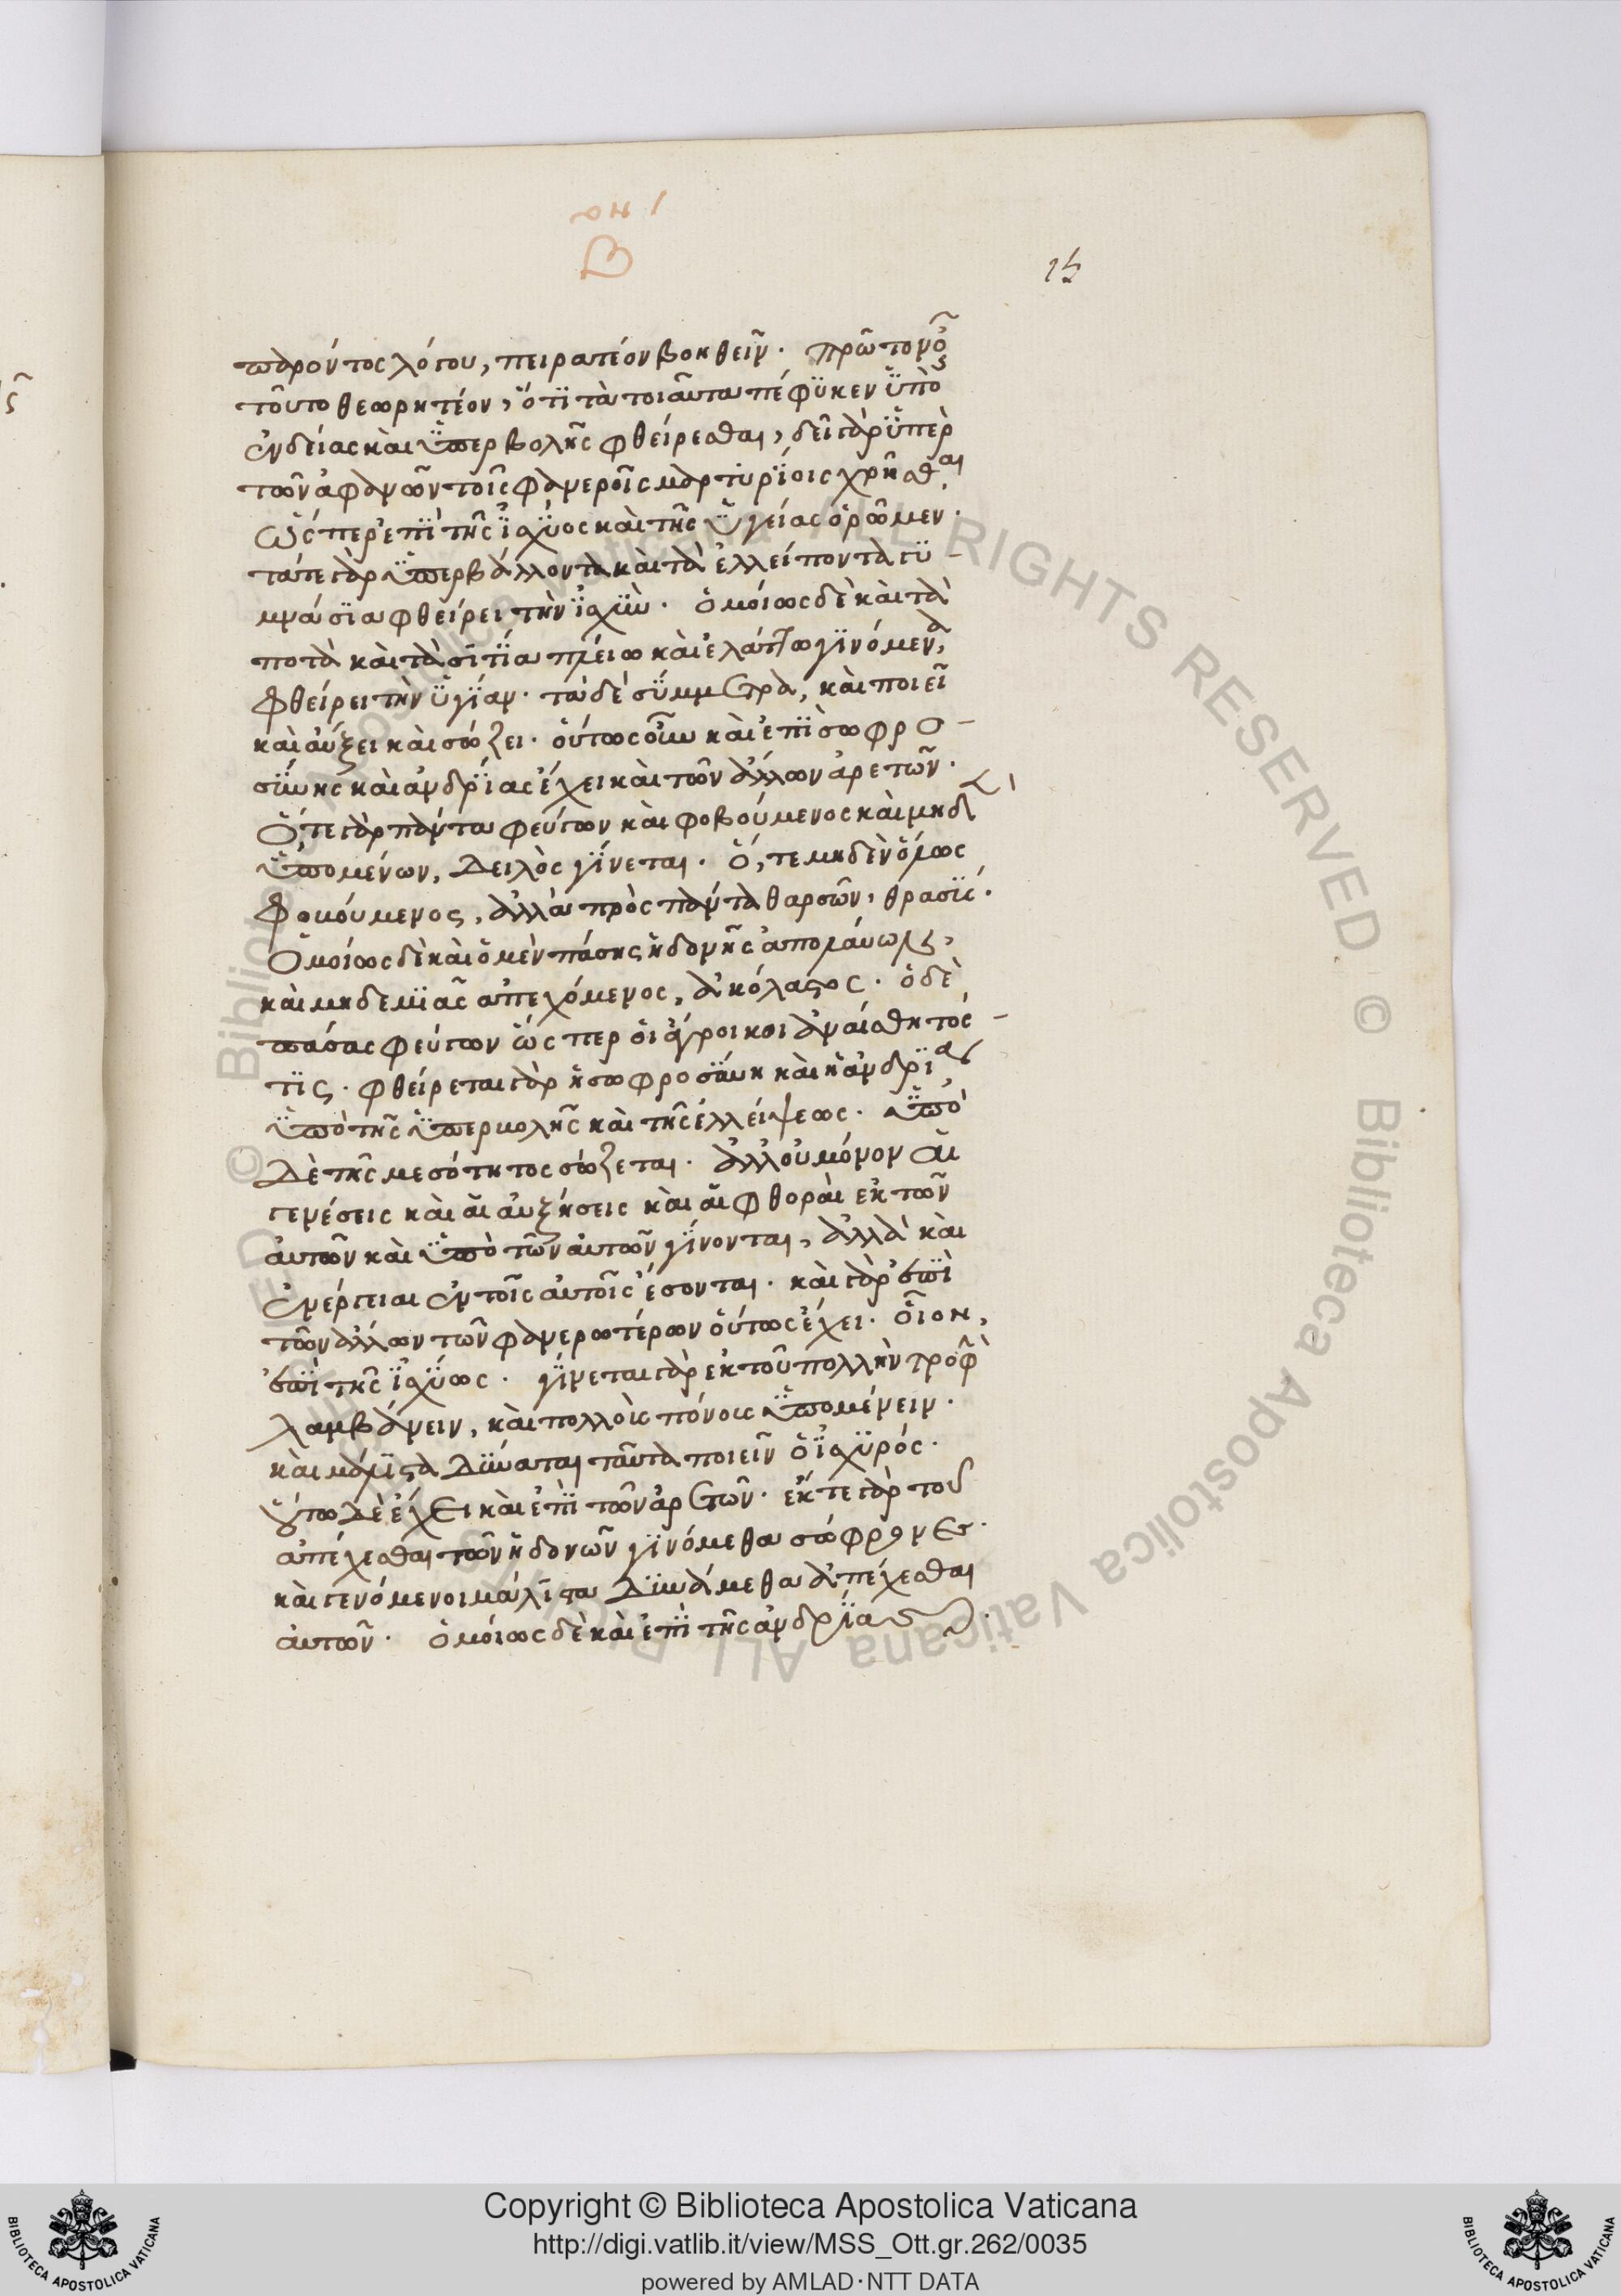 Β
15
παρόντος λόγου, πειρατέον βοηθεῖν. πρῶτον οὖν
τοῦτο θεωρητέον, ὅτι τὰ τοιαῦτα πέφϋκεν ὑπὸ
ἐνδείας καὶ ὑπερβολῆς φθείρεσθαι, δεῖ γὰρ ὑπὲρ
τῶν ἀφανῶν τοῖς φανεροῖς μαρτυρίοις χρῆσθαι
ὥσπερ ἐπὶ τῆς ἰσχύος καὶ τῆς ὑγείας ὁρῶμεν.
τά τε γὰρ ὑπερβάλλοντα καὶ τὰ ἐλλείποντα γυ-
μνάσια φθείρει τὴν ἰσχύν. ὁμοίως δὲ καὶ τὰ
ποτὰ καὶ τὰ σιτία πλείω καὶ ἐλάττω γινόμενα,
φθείρει τὴν ὑγίαν. τὰ δὲ σύμμετρα, καὶ ποιεῖ
καὶ αὔξει καὶ σώζει. οὕτως οὖν καὶ ἐπὶ σωφρο-
σύνης καὶ ἀνδρίας ἔχει καὶ τῶν ἄλλων ἀρετῶν.
Ὅ,τε γὰρ πάντα φεύγων καὶ φοβούμενος καὶ μηδὲν
ὑπομένων, δειλὸς γίνεται. ὅ,τε μηδὲν ὅλως
φοβούμενος, ἀλλὰ πρὸς πάντα θαρσῶν, θρασύς.
Ὁμοίως δὲ καὶ ὁ μὲν πάσης ἡδονῆς ἀπολαύων,
καὶ μηδεμιᾶς ἀπεχόμενος, ἀκόλαστος. ὁ δὲ
πάσας φεύγων ὥσπερ οἱ ἄγροικοι ἀναίσθητός-
τις. φθείρεται γὰρ ἡ σωφροσύνη καὶ ἡ ἀνδρίας
ὑπὸ τῆς ὑπερβολῆς καὶ τῆς ἐλλείψεως. ὑπὸ
δὲ τῆς μεσότητος σώζεται. ἀλλ' οὐ μόνον αἱ
γενέσεις καὶ αἱ αὐξήσεις καὶ αἱ φθοραὶ ἐκ τῶν
αὐτῶν καὶ ὑπὸ τῶν αὐτῶν γίνονται, ἀλλὰ καὶ
ἐνέργειαι ἐν τοῖς αὐτοῖς ἔσονται. καὶ γὰρ ἐπὶ
τῶν ἄλλων τῶν φανερωτέρων οὕτως ἔχει. οἷον,
ἐπὶ τῆς ἰσχύως. γίνεται γὰρ ἐκ τοῦ πολλὴν τροφὴν
λαμβάνειν, καὶ πολλοὺς πόνους ὑπομένειν.
καὶ μάλιστα δύναται ταῦτα ποιεῖν ὁ ἰσχυρός.
οὕτω δὲ ἔχει καὶ ἐπὶ τῶν ἀρετῶν. ἔκ τε γὰρ τοῦ
ἀπέχεσθαι τῶν ἡδονῶν γινόμεθα σώφρονες.
καὶ γενόμενοι μάλιστα δυνάμεθα ἀπέχεσθαι
αὐτῶν. ὁμοίως δὲ καὶ ἐπὶ τῆς ἀνδρίας.
Copyright © Biblioteca Apostolica Vaticana
http://digi.vatlib.it/view/MSS_Ott.gr.262/0035
powered by AMLAD·NTT DATA